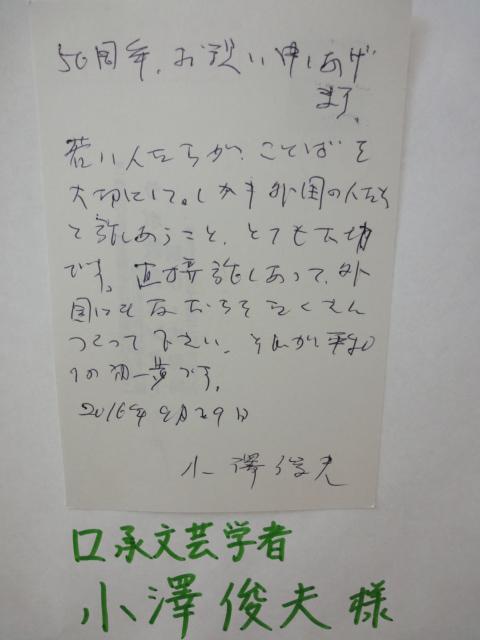 50周年、お祝い申しあげ
ます。
若い人たちが、ことばを
大切にして、しかも外国の人たち
と話しあうこと、とても大切
です。直接話しあって、外
国にも友だちをたくさん
つくって下さい。それが平和
への第一歩です。
2016年9月29日
小澤俊夫
口承文芸学者
小澤俊夫様